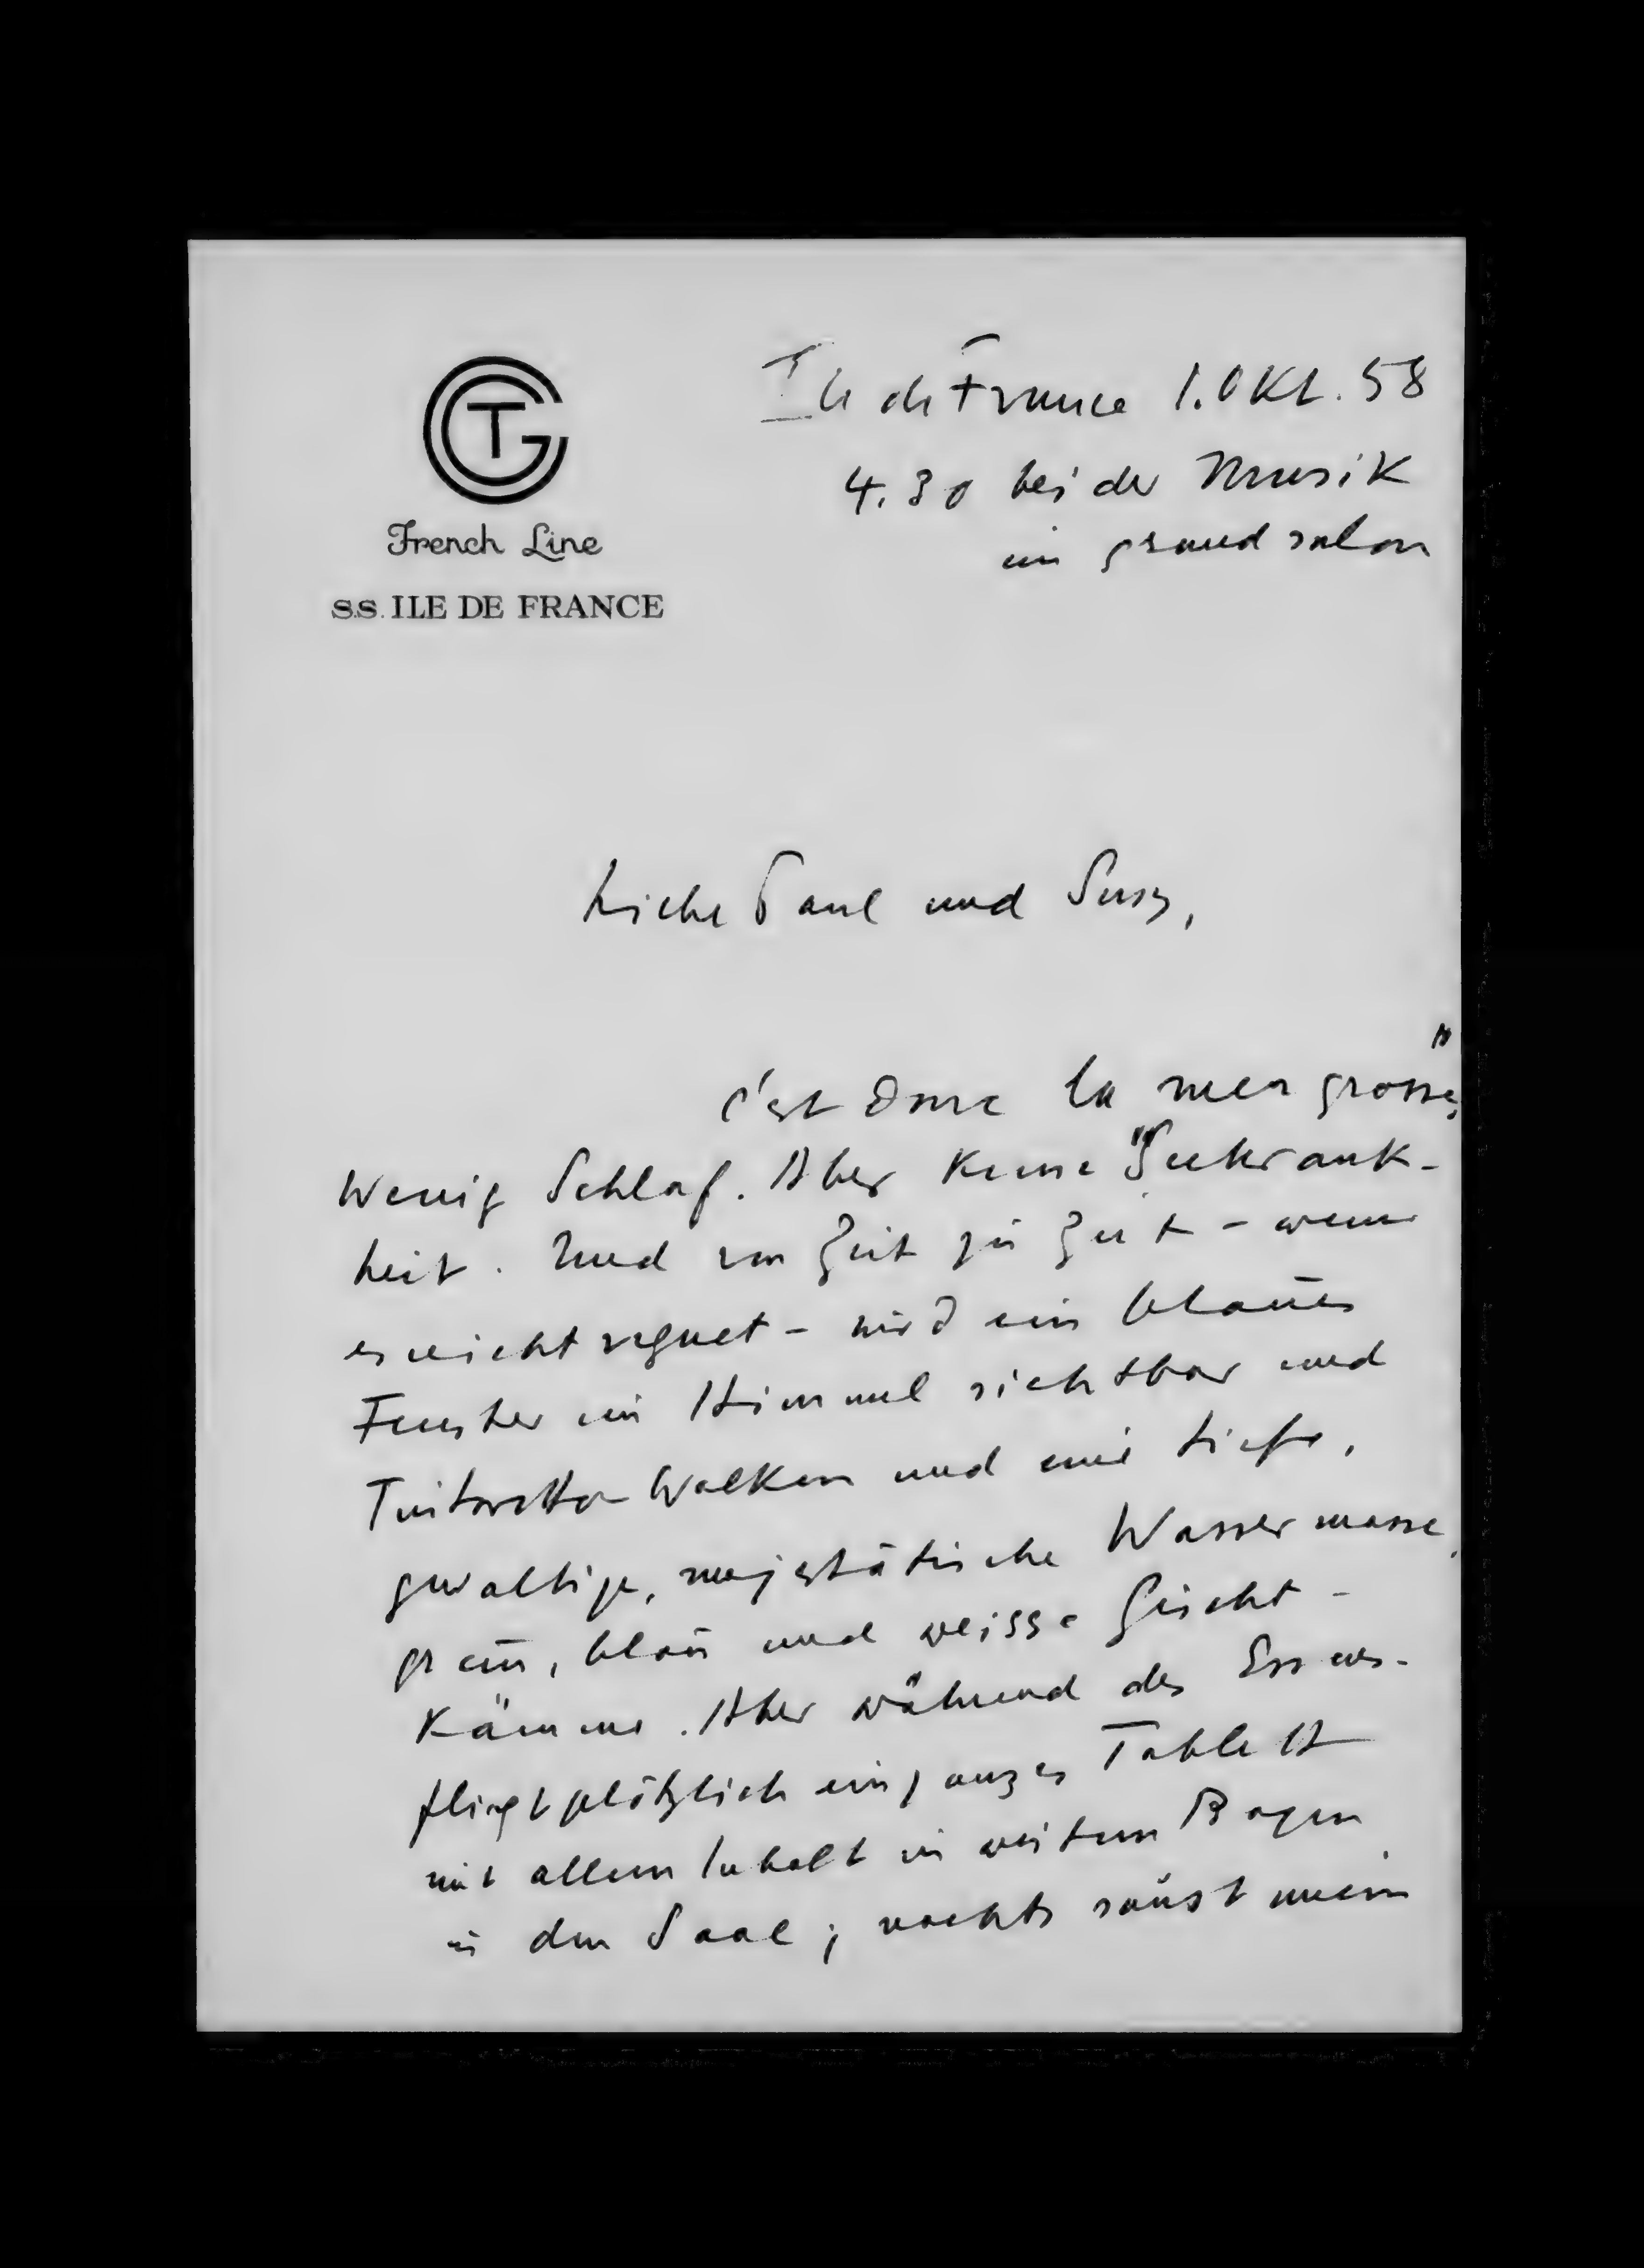 GT
French Line
S.S. ILE DE FRANCE
Ile de France 1. Okt. 58
4.30 bei der Musik
im grand salon
Liebe Paul und Susy,
c'est donc la mer grosse,"
Wenig Schlaf. Aber keine "Seekrank-
heit. Und von Zeit zu Zeit – wenn
es nicht regnet – wird ein blaues
Fenster im Himmel sichtbar und
Tintoretto-Wolken und eine tiefe,
gewaltige, majestätische Wassermasse,
grün, blau und weisse Gischt-
Kämme. Aber während des Essens
fliegt plötzlich ein ganzes Tablett
mit allem Inhalt in weitem Bogen
in den Saal; nachts saust mein